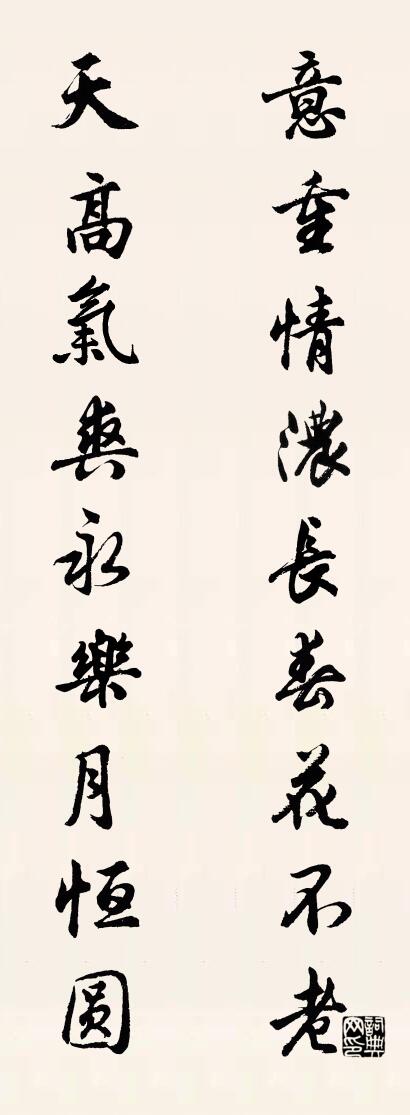 意重情濃長春花不老
天高氣爽永樂月恒圓
詞典網印